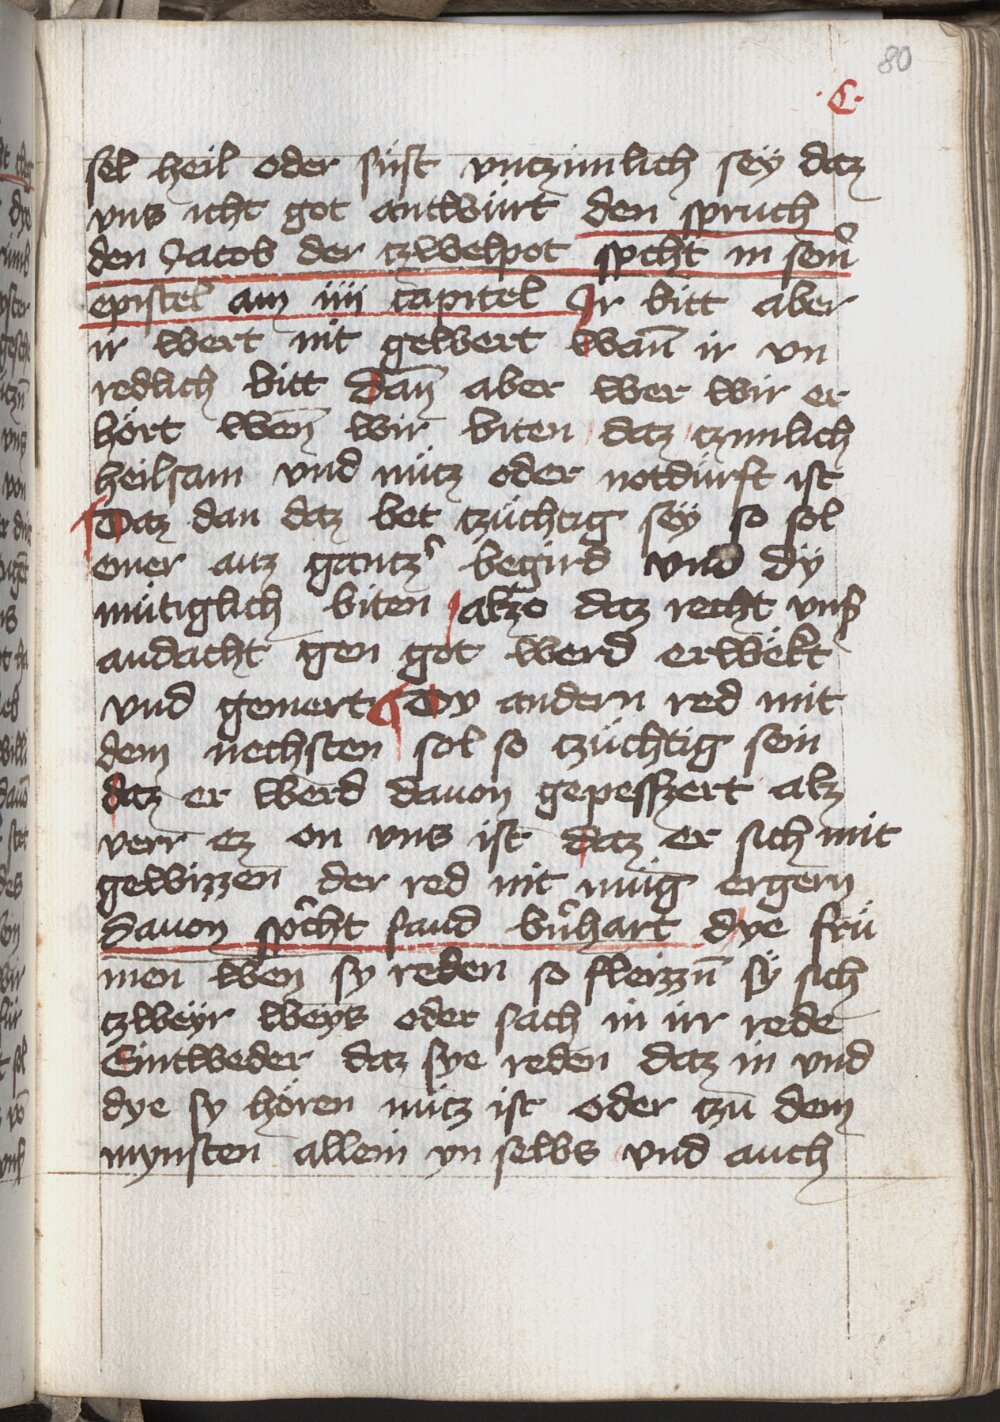 80
.C.
sel heil oder süst vntzimlich sey datz
vns icht got antwürt den spruch
den Jacob der tzwelpot spicht in seīr
epistel am iiii capitel Ir bitt aber
ir wert nit gewert wañ ir vn
redlich bitt Dañ aber wer wir er
hört weñ wir biten datz tzimlich
heilsam vnd nütz oder notdürft ist
Datz dan datz bet tzüchtig sey so sol
ouer auz gantz' begird vnd dy
mütiglich biten alzo datz recht vnß
andacht gen got werd erwekt
vnd gemert Dy andern red mit
dem nechsten sol so tzüchtig sein
datz er werd dauon gepesszert alz
verr ez on vns ist datz er sich mit
gewizzen der red nit müg ergern
Dauon spicht sand b'nhart dye frü
men wen sy reden so fleizzñ sy sich
tzweyr weys oder sach in irr rede
Eintweder datz sye reden datz in vnd
dye sy hören nütz ist oder tzu dem
mynsten allein yn selbs vnd auch